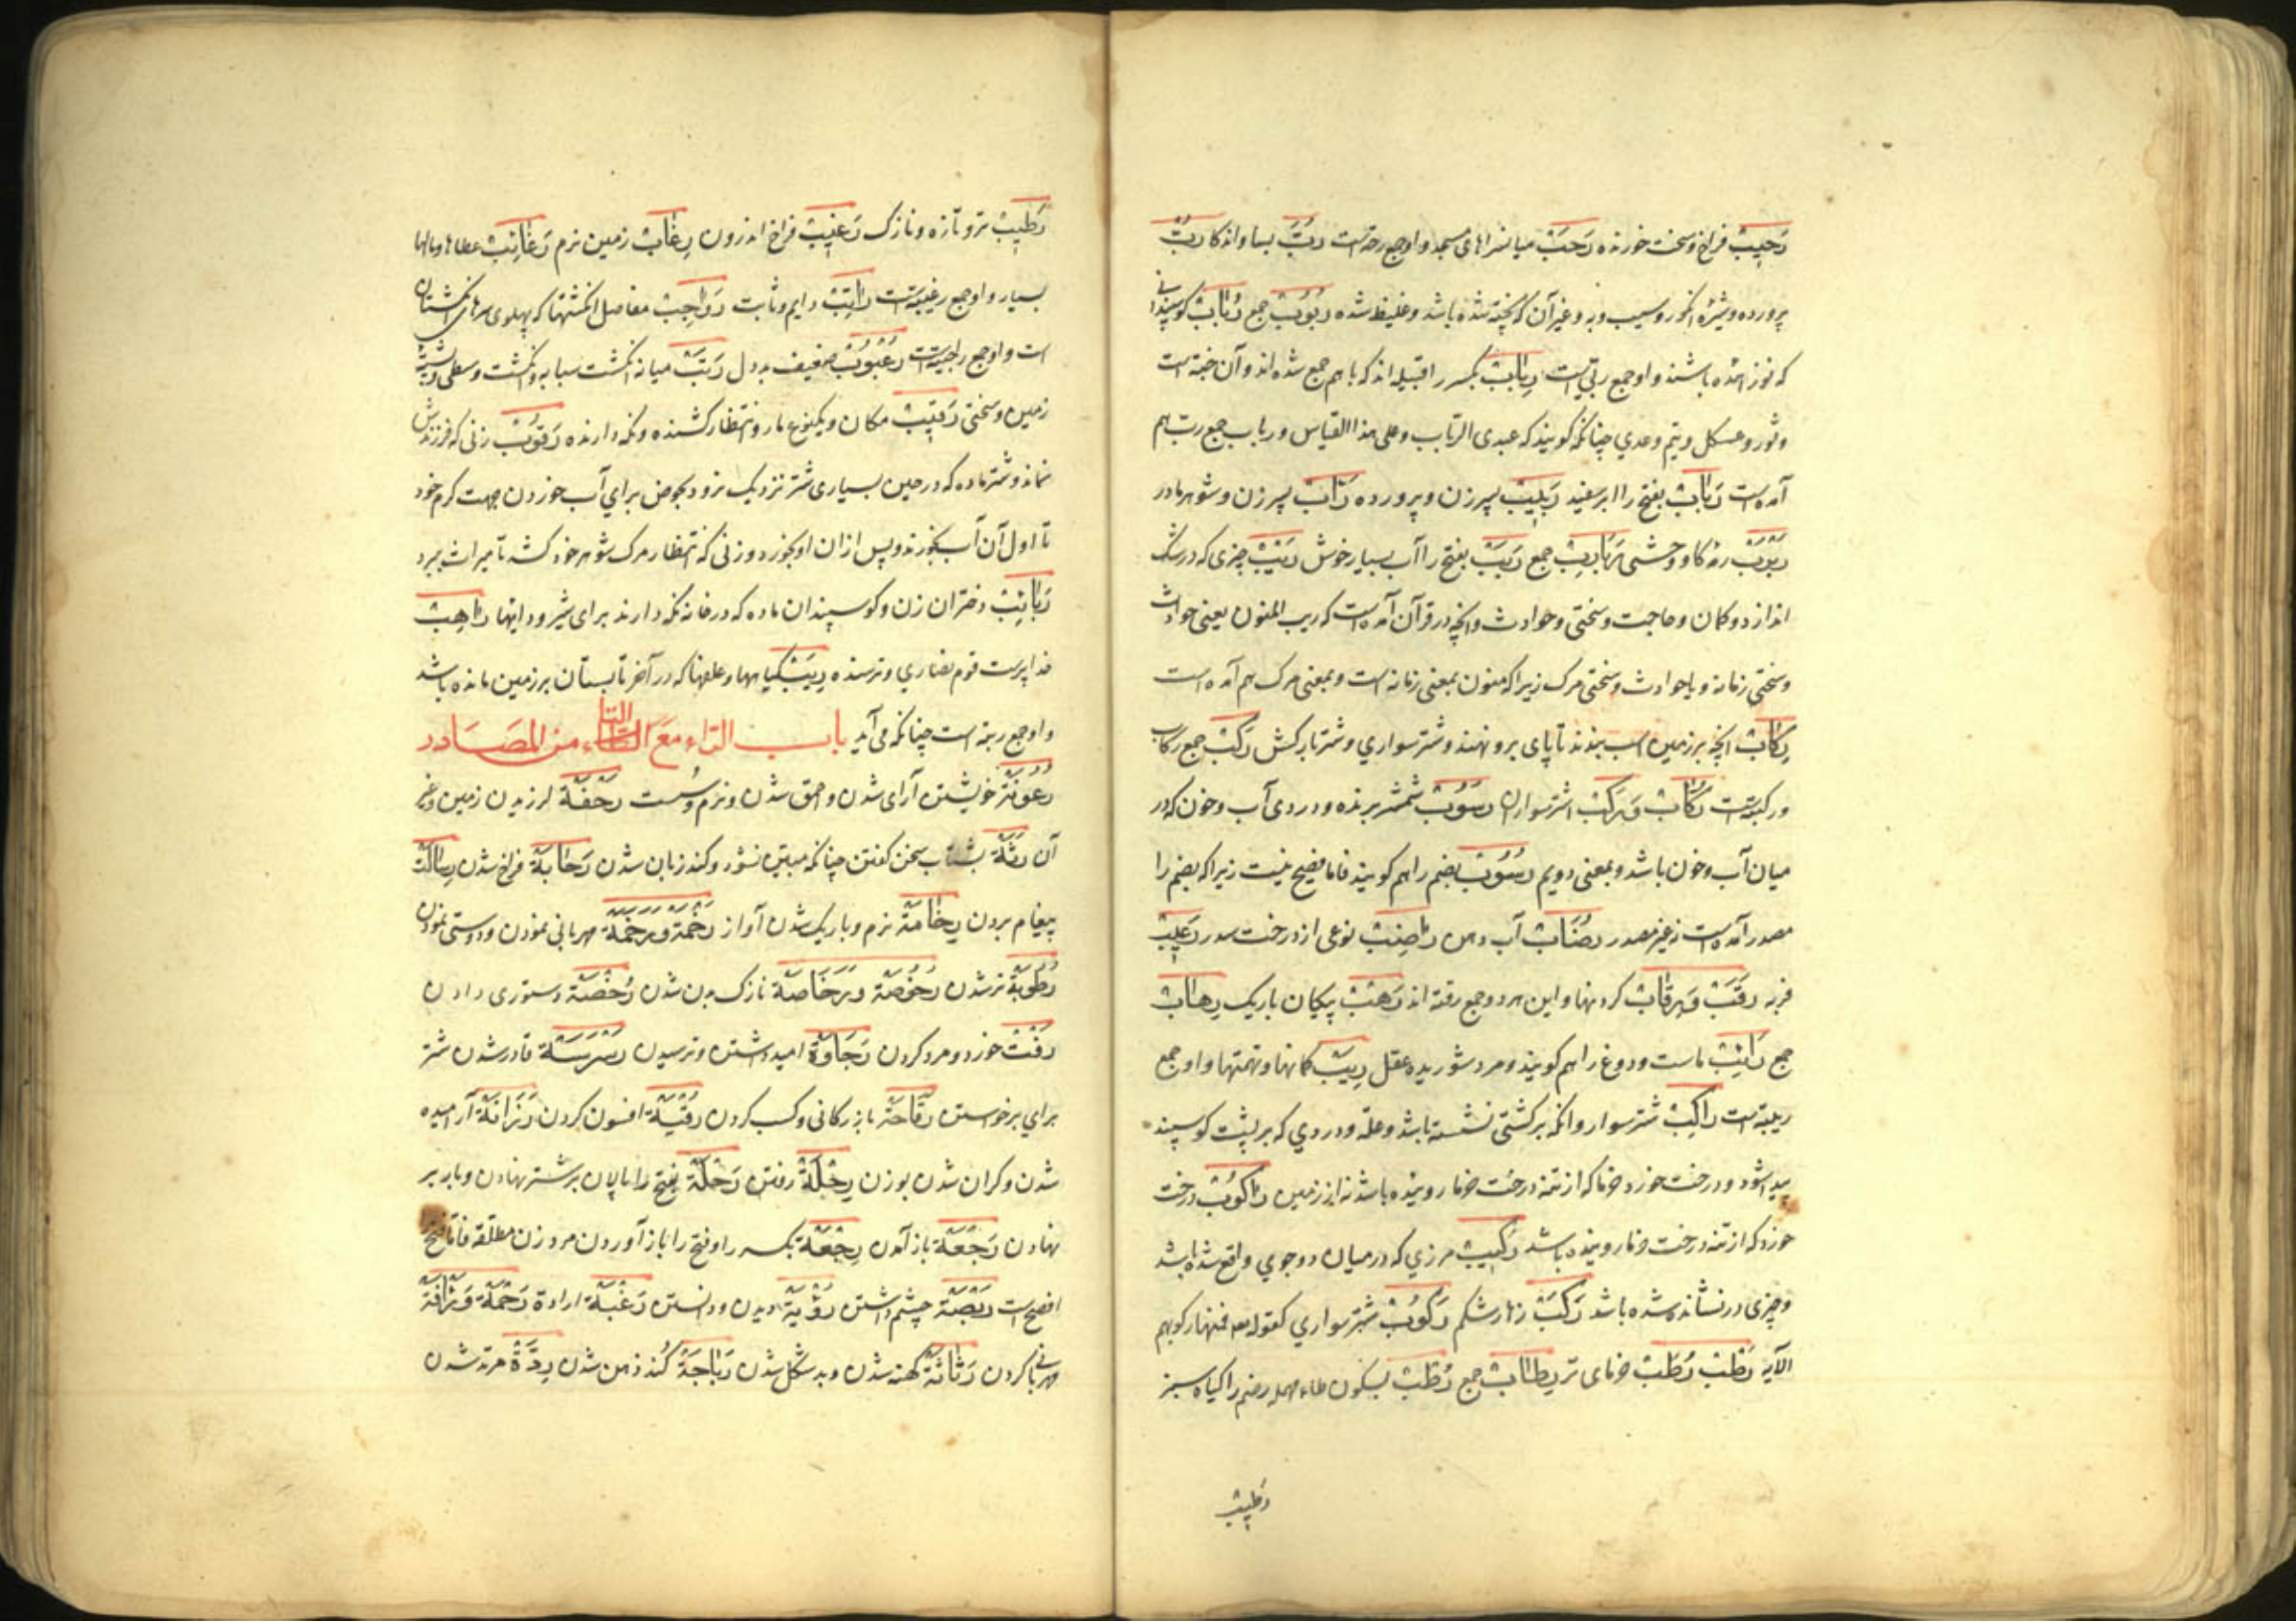 رَحِیبْ فراخ و سخت خورنده رَحَبْ میانسراهای مسجد و او جمع رحبه است رُبَّ بسا و اندکا رُبّ
پرورده و شیرهٔ انگور و سیب و به و غیر آن که پخته شده باشد و غلیظ شده رُبُوبْ جمع رُبَابْ گوسپندانی
که نوزائیده باشند و او جمع ربّی است رِبَابْ بکسر را قبیله اند که با هم جمع شده اند و آن ضبّه است
و ثور و عکل و تیم و عدی چنانکه گویند که عبدی الرباب و علی هذا القیاس و رباب جمع رب هم
آمده است رَبَابْ بفتح را ابر سفید رَبِیبْ پسر زن و پرورده رَابّ پسر زن و شوهر مادر
رَبْرَبْ رمه گاو وحشی رَبَارِبْ جمع رَبَبْ بفتح را آب بسیار خوش رَیْبْ چیزی که در شک
اندازد و گمان و حاجت و سختی و حوادث و آنچه در قرآن آمده است که ریب المنون یعنی حوادث
و سختی زمانه و یا حوادث و سختی مرگ زیرا که منون بمعنی زمانه است و بمعنی مرگ هم آمده است
رِکَابْ آنچه بر زین اسب بندند تا پای برو نهند و شتر سواری و شتر بارکش رُکُبْ جمع رکاب
و رکوبه است رُکَّابْ وَ رَکْبْ اشتر سواران رَسُوبْ شمشیر برنده و دردی آب و خون که در
میان آب و خون باشد و بمعنی دویم رُسُوبْ بضم را هم گویند فاما فصیح نیست زیرا که بضم را
مصدر آمده است نه غیر مصدر رُضَابْ آب دهن رَاصِبْ نوعی از درخت سدر رَعِیبْ
فربه رَقَبْ وَ رِقَابْ گردنها و این هر دو جمع رقبه اند رَهْبْ پیکان باریک رِهَابْ
جمع رَائِبْ ماست و دوغ را هم گویند و مرد شوریده عقل رِیَبْ گمانها و تهمتها و او جمع
ریبه است رَاکِبْ شتر سوار و آنکه بر کشتی نشسته باشد و علّه و دردی که بر پشت گوسپند
پیدا شود و درخت خورد خرما که از تنه درخت خرما روینده باشد نه از زمین رَاکُوبْ درخت
خورد که از تنه درخت خرما روینده باشد رَکِیبْ مرزی که در میان دو جوی واقع شده باشد
و چیزی در نشانده شده باشد رَکَبْ زهار شکم رَکُوبْ شتر سواری کقوله تعه فمنها رکوبهم
الآیه رَطْبْ رُطَبْ خرمای تر رِطَابْ جمع رُطْبْ بسکون طاء مهمله و ضم را گیاه سبز
رطیب
رَطِیبْ تر و تازه و نازک رَغِیبْ فراخ اندرون رِغَابْ زمین نرم رَغَائِبْ عطاها و مالها
بسیار و او جمع رغیبه است رَاتِبْ دایم و ثابت رَوَاجِبْ مفاصل انگشتها که پهلوی سرهای انگشتان
است و او جمع راجبه است رُعْبُوبْ ضعیف بد دل رَتَبْ میانه انگشت سبابه و انگشت وسطی و پشته
زمین و سختی رَقِیبْ مکان و یکنوع مار و انتظار کشنده و نگه دارنده رَقُوبْ زنی که فرزندش
نماند و شتر ماده که در حین بسیاری شتر نزدیک نرود بحوض برای آب خوردن بجهت کرم خود
تا اول آن آب بخورند و پس از آن او بخورد و زنی که انتظار مرگ شوهر خود کشد تا میراث ببرد
رَبَائِبْ دختران زن و گوسپندان ماده که در خانه نگه دارند برای شیر و داینها رَاهِبْ
خدا پرست قوم نصاری و ترسنده رِبَبْ گیاهها و علفها که در آخر تابستان بر زمین مانده باشد
و او جمع ربه است چنانکه می آید باب الراء مع التاء من المصادر
رُعُونَة خویشتن آرای شدن و احمق شدن و نرم و سست رَجْفَة لرزیدن زمین و غیر
آن رُتَّة بشتاب سخن گفتن چنانکه مبین نشود و کند زبان شدن رَحَابَة فراخ شدن رِسَالَة
پیغام بردن رِخَامَة نرم و باریک شدن آواز رَحْمَة وَ مَرْحَمَة مهربانی نمودن و دوستی نمودن
رُطُوبَة تر شدن رُخُوصَة وَ رَخَاصَة نازک بدن شدن رُخْصَة دستوری دادن
رَفْتْ خورد و مرد کردن رَجَاوَة امید داشتن و ترسیدن رَسْرَسَة قادر شدن شتر
برای برخاستن رَقَاحَة بازرگانی و کسب کردن رُقْیَة افسون کردن رَزَانَة آرامیده
شدن و گران شدن بوزن رِحْلَة رفتن رَحْلَة بفتح را پالان بر شتر نهادن و بار بر
نهادن رَجْعَة باز آمدن رِجْعَة بکسر را و فتح را باز آوردن مرد زن مطلقه فاما فتح
افصح است رُبْصَة چشم داشتن رُؤْیَة دیدن و دانستن رَغْبَة ارادة رَحْمَة وَ رَأْفَة
مهربانی کردن رَثَاثَة کهنه شدن و بد شکل شدن رَبَاجَة کند ذهن شدن رِدَّة مرتد شدن